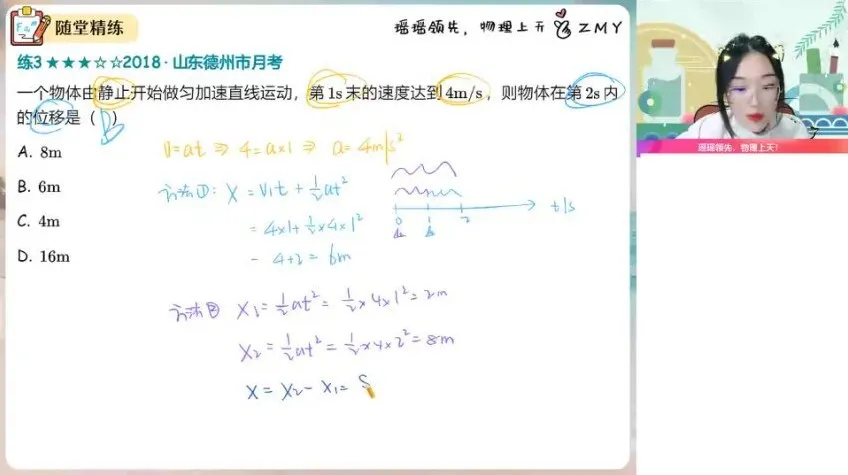 随堂精练
瑶瑶领先，物理上天 ZMY
练3 ★★★☆☆2018·山东德州市月考
一个物体由静止开始做匀加速直线运动，第1s末的速度达到4m/s，则物体在第2s内
的位移是（B）
A. 8m
B. 6m
C. 4m
D. 16m
v=at ⇒ 4=a×1 ⇒ a=4m/s²
方法①: x = v₁t + ½at²
= 4×1+½×4×1²
- 4+2 = 6m
0 1 2 t/s
方法② x₁=½at²=½×4×1²=2m
x₂=½at²=½×4×2²=8m
x = x₂ - x₁= 8
瑶瑶领先，物理上天！